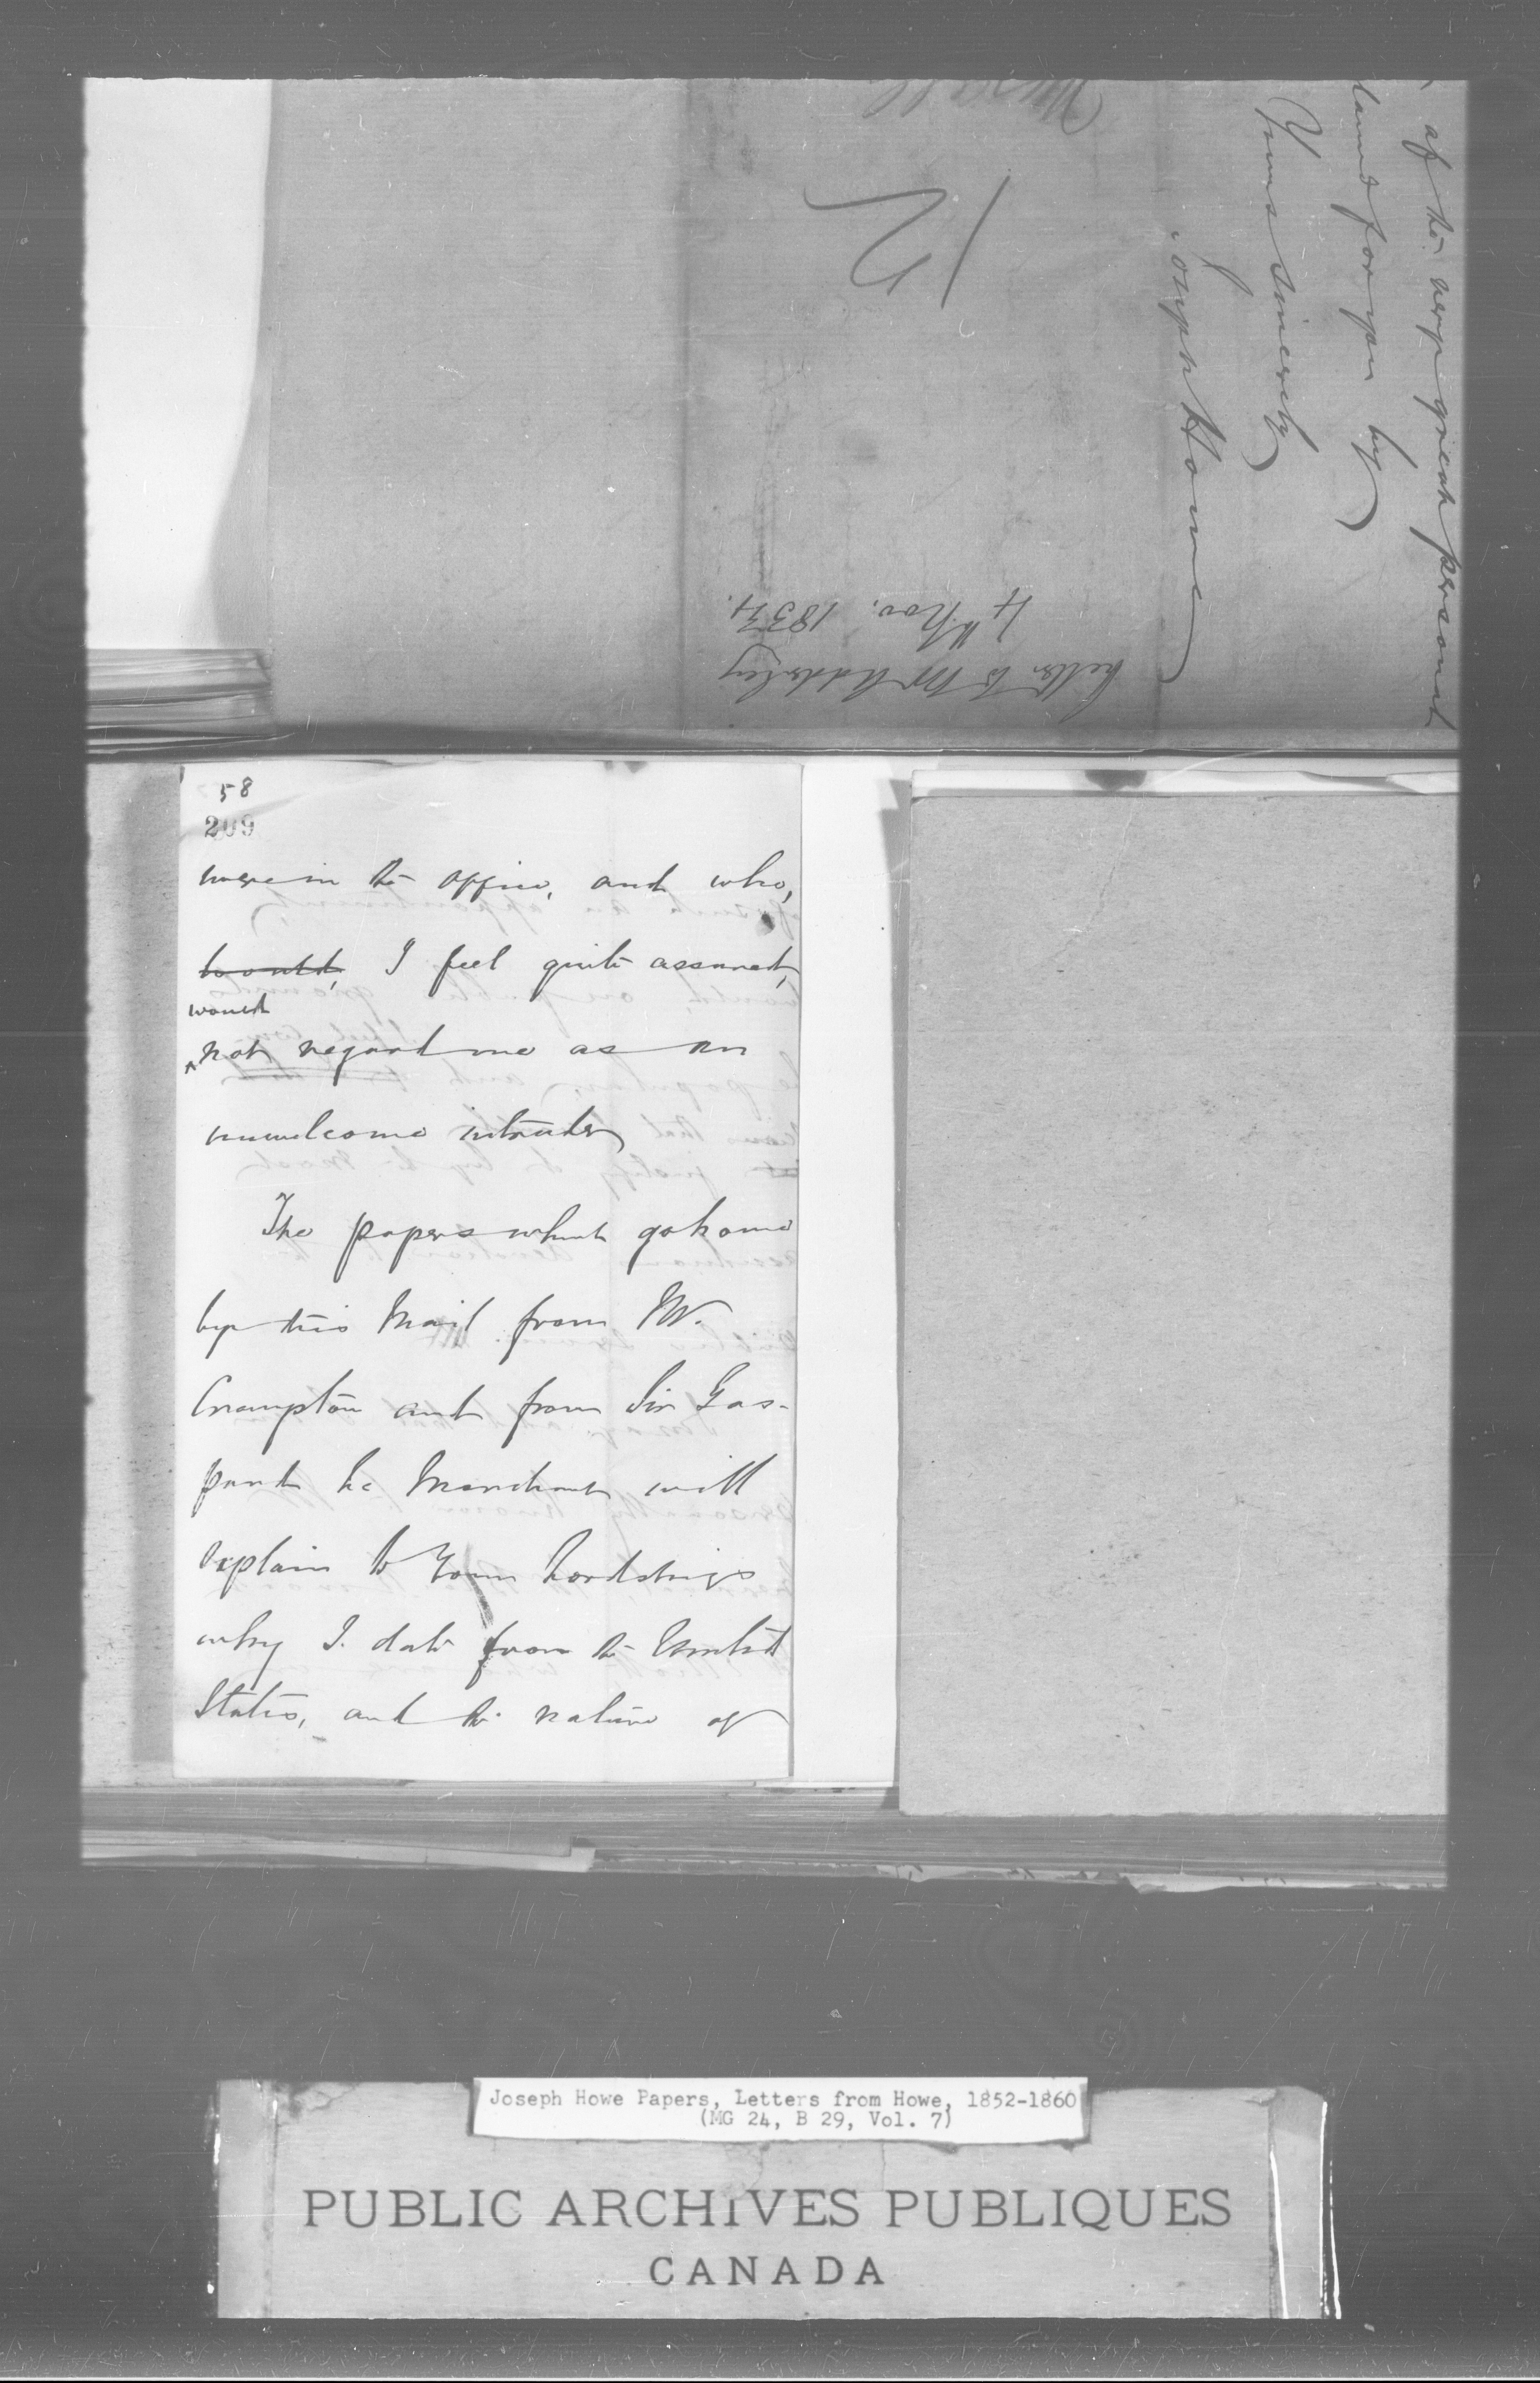 of the very great personal
for you by
Yours sincerely
Joseph Howe
Letter to Mr Adderley
4th Nov. 1854.
58
209
were in the office, and who,
would, I feel quite assured,
would
not regard me as an
unwelcome intruder
The papers which go home
by this Mail from Mr.
Crampton and from Sir Gas-
pard Le Marchant will
explain to Your Lordships
why I date from the United
States, and the nature of
Joseph Howe Papers, Letters from Howe, 1852-1860
(MG 24, B 29, Vol. 7)
PUBLIC ARCHIVES PUBLIQUES
CANADA